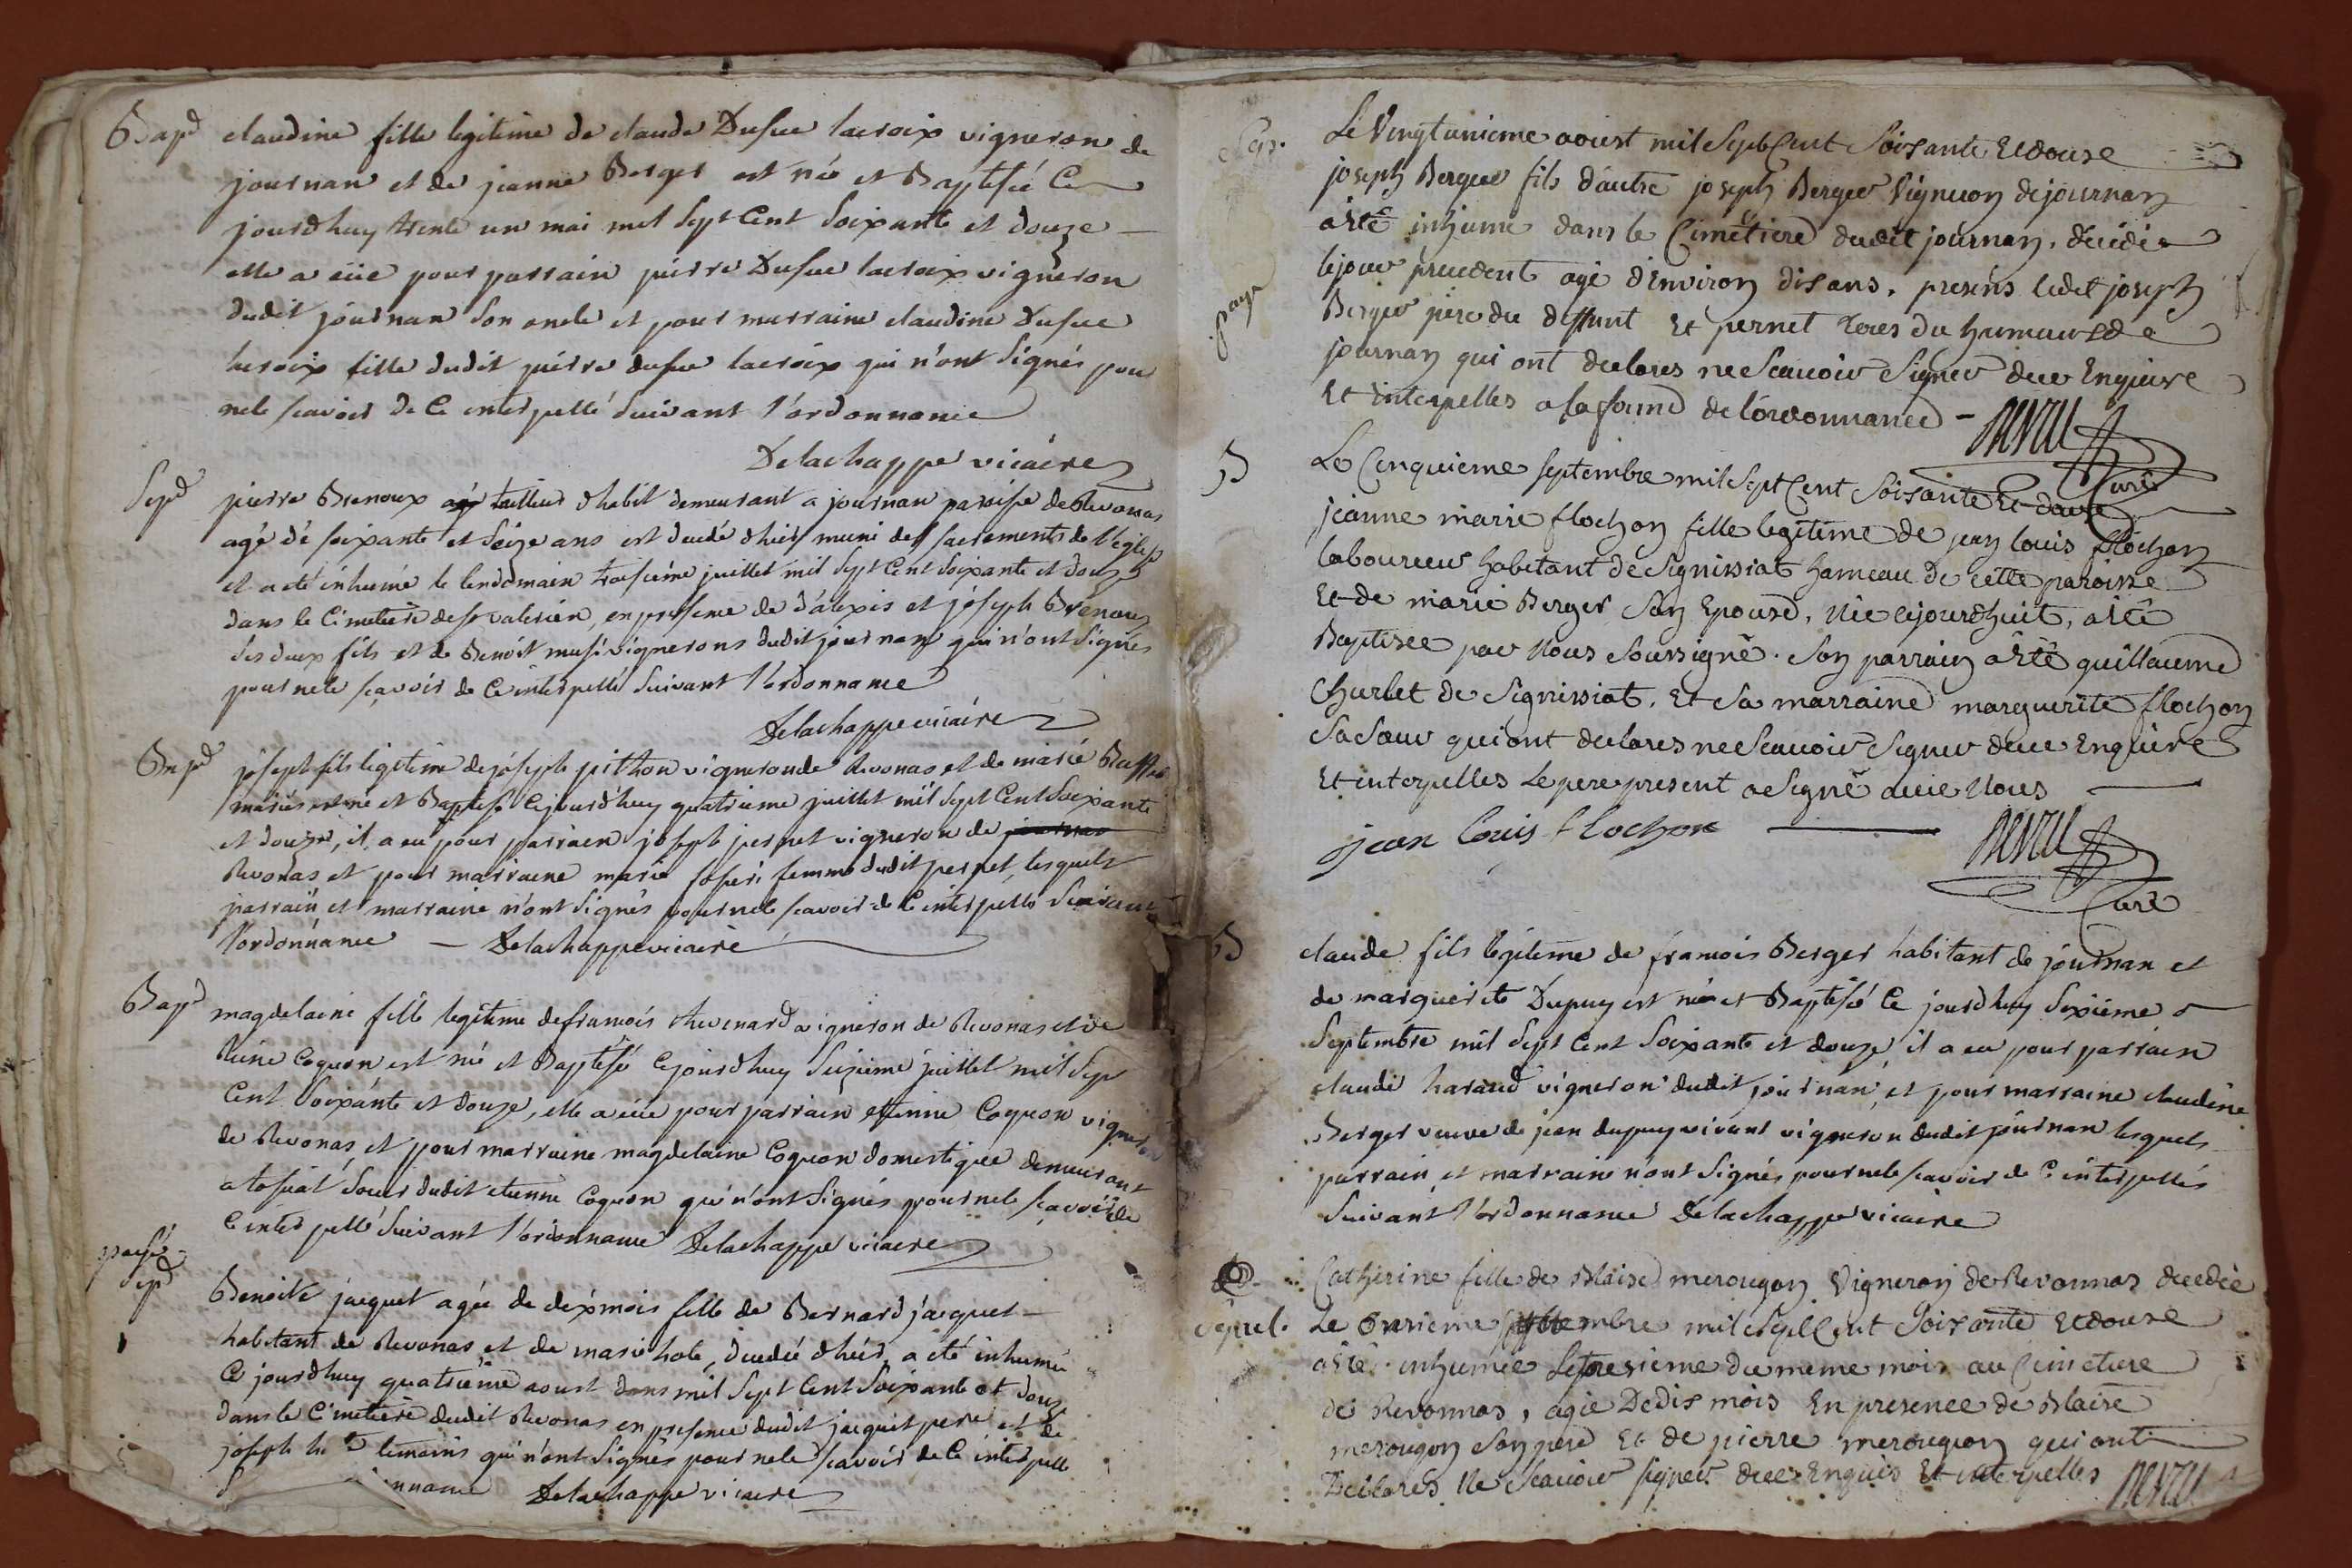 Bapd claudine fille legitime de claude Dufue lacroix vigneron de
journan et de jeanne Berger est née et Baptisée Ce
jourdhuy trente un mai mil sept Cent Soixante et douze
elle a eüe pour parrain pierre Dufue lacroix vigneron
dudit journan Son oncle et pour marraine claudine Dufue
lacroix fille dudit pierre dufue lacroix qui n'ont Signés pour
nele scavoir de Ce interpellé Suivant l'ordonnance
Delachappe vicaire
Sepd pierre Brenoux tailleur dhabit demeurant a journan paroisse de Revonas
agé de soixante et Seize ans est decedé dhier muni des sacrements de l'eglise
et a eté inhumé le lendemain troisieme juillet mil sept Cent Soixante et douze
dans le Cimetiere de st valerien, en presence de d'alexis et joseph Brenoux
Ses deux fils et de Benoit musi vignerons dudit journan qui n'ont Signés
pour nele scavoir de Ce interpellé Suivant l'ordonnance
Delachappe vicaire
Bapd joseph fils legitime de joseph pithon vigneron de Revonas et de marie
mariés est né et Baptisé Cejourd'huy quatrieme juillet mil sept Cent Soixante
et douze, il a eu pour parrain joseph pernet vigneron de journan
Revonas et pour marraine marie femme dudit pernet, lesquels
parrain et marraine n'ont Signés pour nele scavoir de Ce interpellé Suivant
l'ordonnance — Delachappe vicaire
Bapd magdelaine fille legitime de francois Chevenard vigneron de Revonas et de
Reine Coquon est né et Baptisé Cejourdhuy Seizieme juillet mil Sept
Cent Soixante et douze, elle a eüe pour parrain etienne Coquon vigneron
de Revonas, et pour marraine magdelaine Coquon domestique demeurant
a tosiat Soeur dudit etienne Coquon qui n'ont Signés pour nele scavoir de
Ce interpellé Suivant l'ordonnance Delachappe vicaire
payé
Sepd Benoite jacquet agée de dix mois fille de Bernard jacquet
habitant de Revonas et de marie hole, decedée dhier, a eté inhumée
Ce jourdhuy quatrieme aoust dans mil Sept Cent Soixante et douze
dans le Cimetiere dudit Revonas en presence dudit jacquet pere et de
joseph temoins qui n'ont Signés pour nele scavoir de Ce interpellé
nnance Delachappe vicaire
Sep. Le Vingtunieme aoust mil Sept Cent Soisante Et douse
joseph Berger fils d'autre joseph Berger Vigneron de journan
a Eté inhumé dans le Cimétiere dudit journan, décédé
le jour precedent agé d'Environ dis ans. presens ledit joseph
paye Berger pere du deffunt Et pernet du hameau de
journan qui ont declarés ne Scauoir Signer de ce Enquire
Et interpelles a la forme de l'ordonnance — Curé
B Le Cinquieme septembre mil Sept Cent Soisante Et douse
jeanne marie flochon fille legitime de jean louis flochon
laboureur habitant de Signissiat hameau de cette paroisse
Et de marie Berger Son Epouse, Née cejourdhuit, a Eté
Baptisée par Nous Soussigné. Son parrain a Eté guillaume
Churlet de Signissiat. Et Sa marraine marguerite flochon
Sa Sœur qui ont declares ne Scauoir Signer de ce Enquire
Et interpelles Le pere present a Signé auec Nous
jean louis flochon
Curé
B claude fils legitime de francois Berger habitant de journan et
de marguerite Dupuy est né et Baptisé Ce jourdhuy Sixieme
Septembre mil Sept Cent Soixante et douze, il a eu pour parrain
claude haraud vigneron dudit journan, et pour marraine claudine
Berger veuve de jean dupuy vivant vigneron dudit journan lesquels
parrain et marraine n'ont Signés pour nele scavoir de Ce interpellés
Suivant l'ordonnance Delachappe vicaire
Catherine fille de Blaise merougon Vigneron de Revonnas decedée
Le Onzieme septembre mil Sept Cent Soisante Et douse
a Eté inhumée Le tresieme du meme mois au Cimetiere
de Revonnas, agée De dis mois En presence de Blaise
merougon Son pere Et de pierre merougon qui ont
Déclarés Ne Scauoir signer de ce Enquis Et interpelles